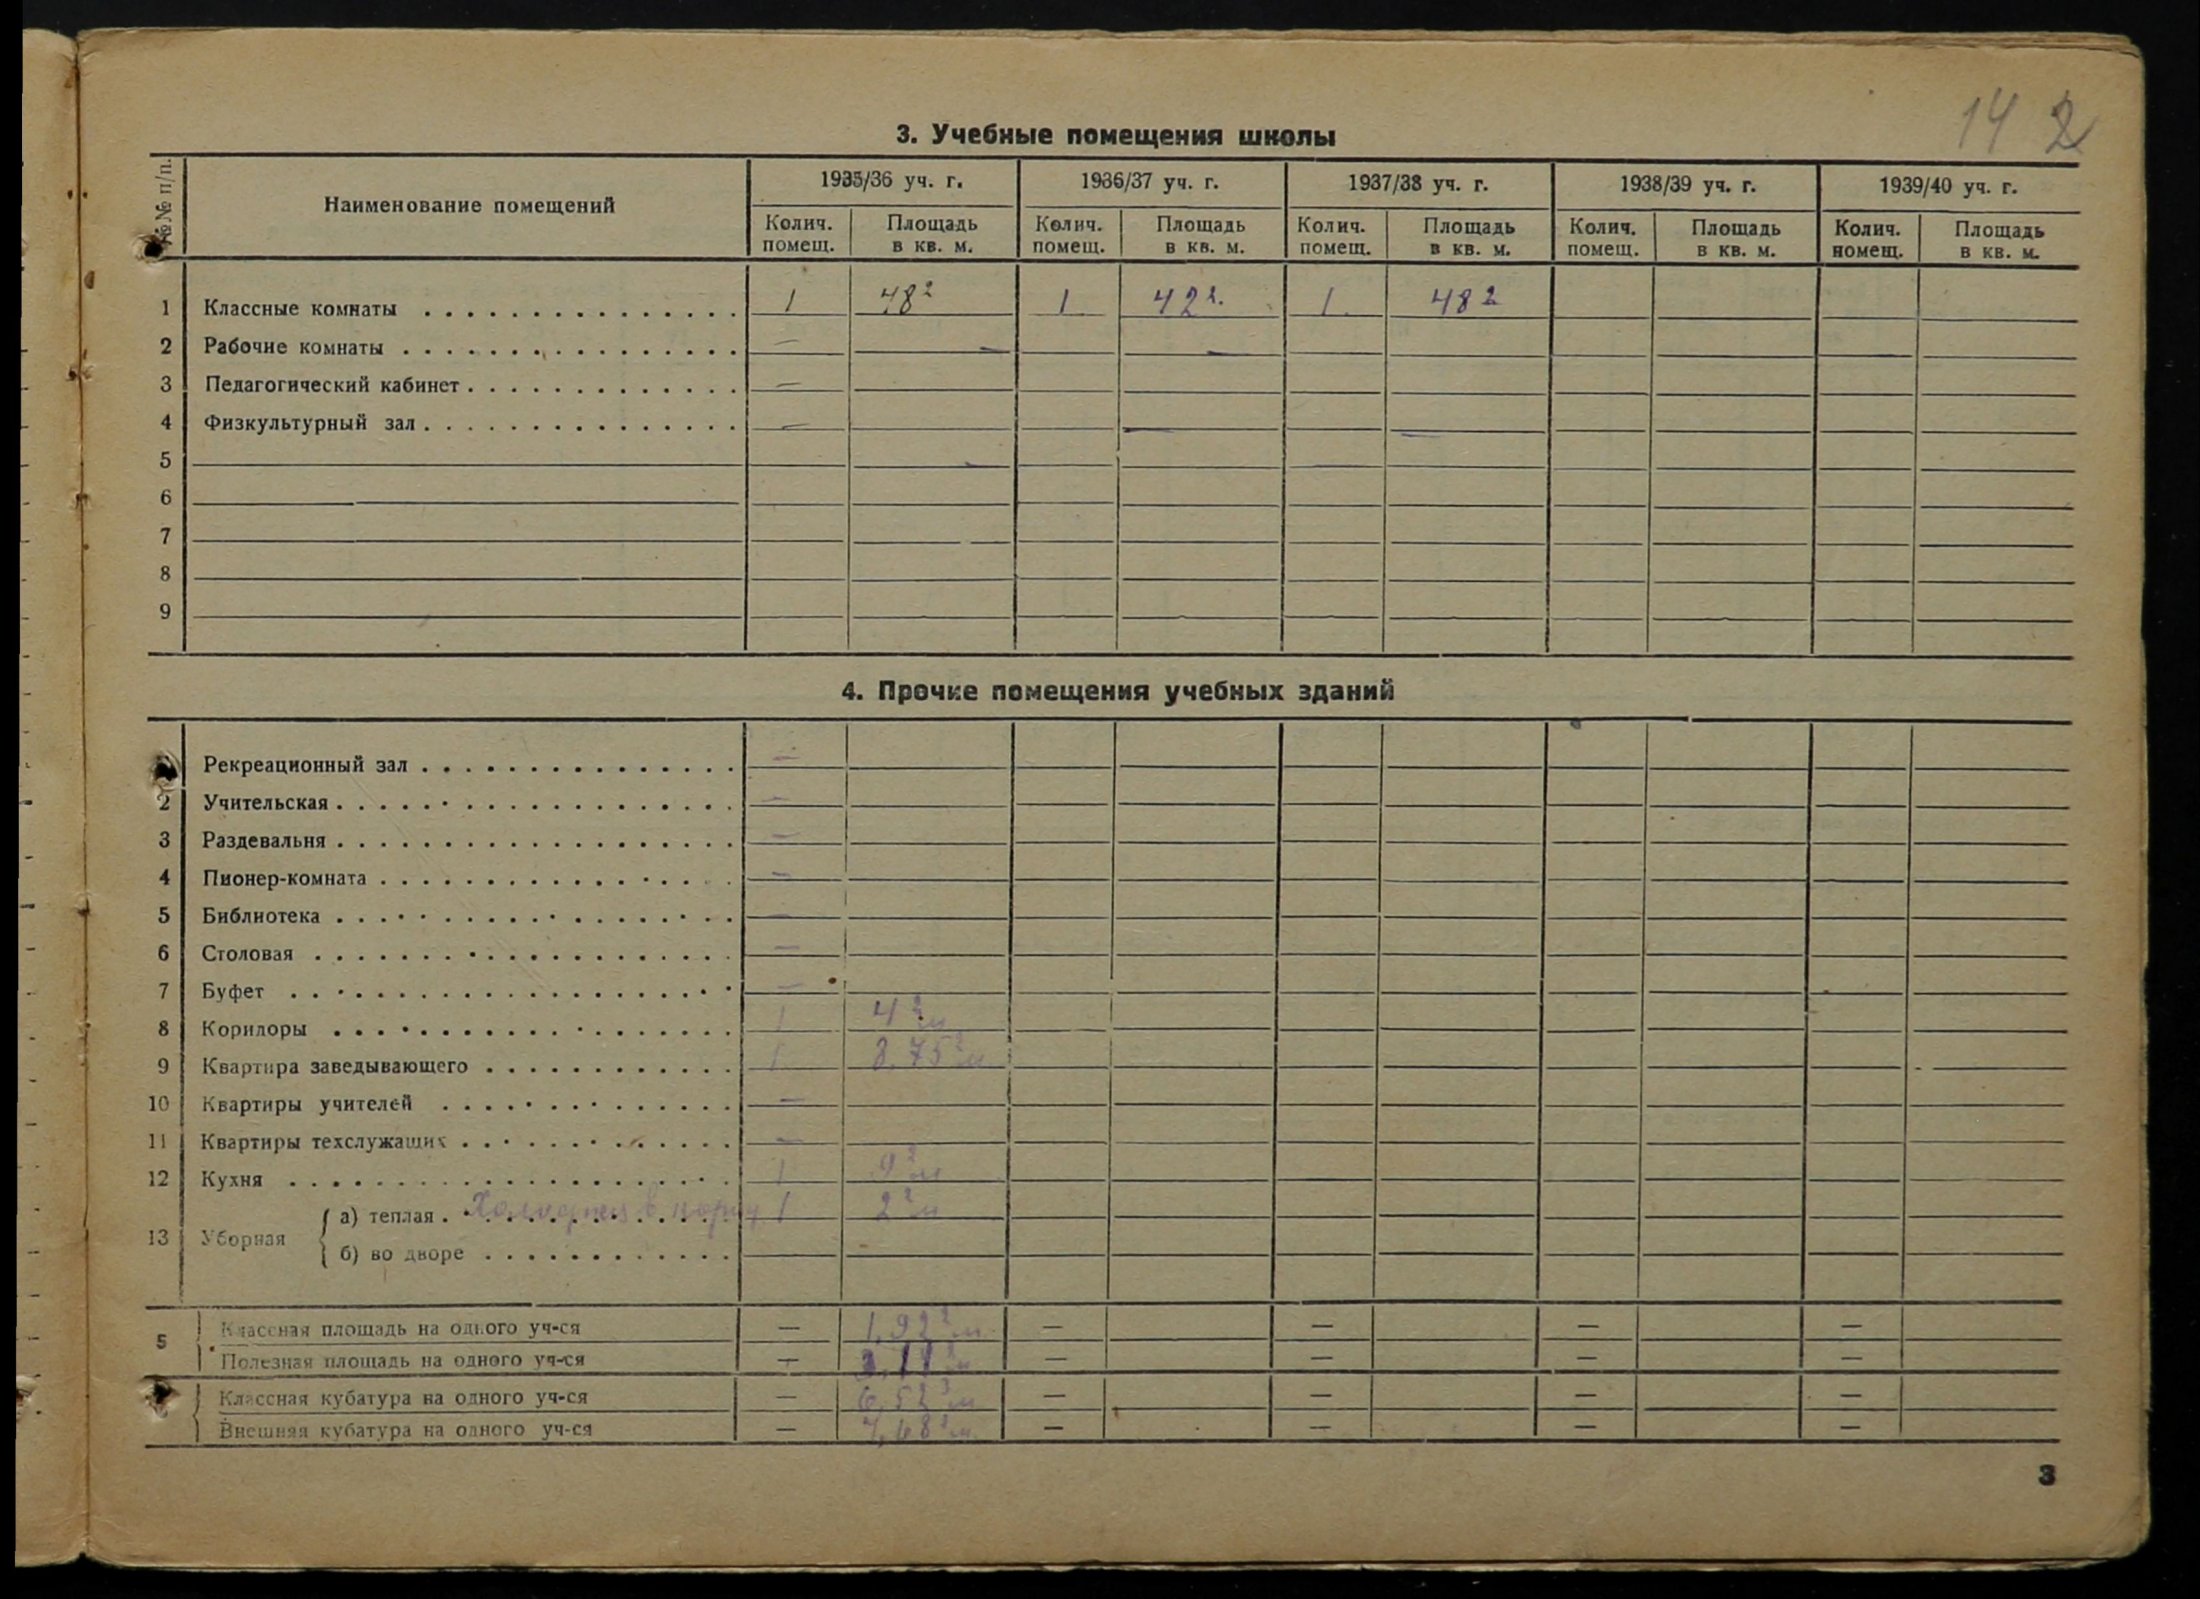 14 2
3. Учебные помещения школы
№№ п/п. Наименование помещений 1935/36 уч. г. 1936/37 уч. г. 1937/38 уч. г. 1938/39 уч. г. 1939/40 уч. г.
Колич. помещ. Площадь в кв. м. Колич. помещ. Площадь в кв. м. Колич. помещ. Площадь в кв. м. Колич. помещ. Площадь в кв. м. Колич. помещ. Площадь в кв. м.
1 Классные комнаты 1 48² 1 42². 1 48²
2 Рабочие комнаты — — —
3 Педагогический кабинет —
4 Физкультурный зал — — —
5
6
7
8
9
4. Прочие помещения учебных зданий
Рекреационный зал —
2 Учительская —
3 Раздевальня —
4 Пионер-комната —
5 Библиотека —
6 Столовая —
7 Буфет —
8 Коридоры 1 4²м
9 Квартира заведывающего 1 8,75²м
10 Квартиры учителей —
11 Квартиры техслужащих —
12 Кухня 1 9²м
13 Уборная а) теплая 1 2²м
б) во дворе
5 Классная площадь на одного уч-ся — 1,92²м — — — —
Полезная площадь на одного уч-ся — — — — —
Классная кубатура на одного уч-ся — 6,52³м — — — —
Внешняя кубатура на одного уч-ся — 7,68³м — — — —
3